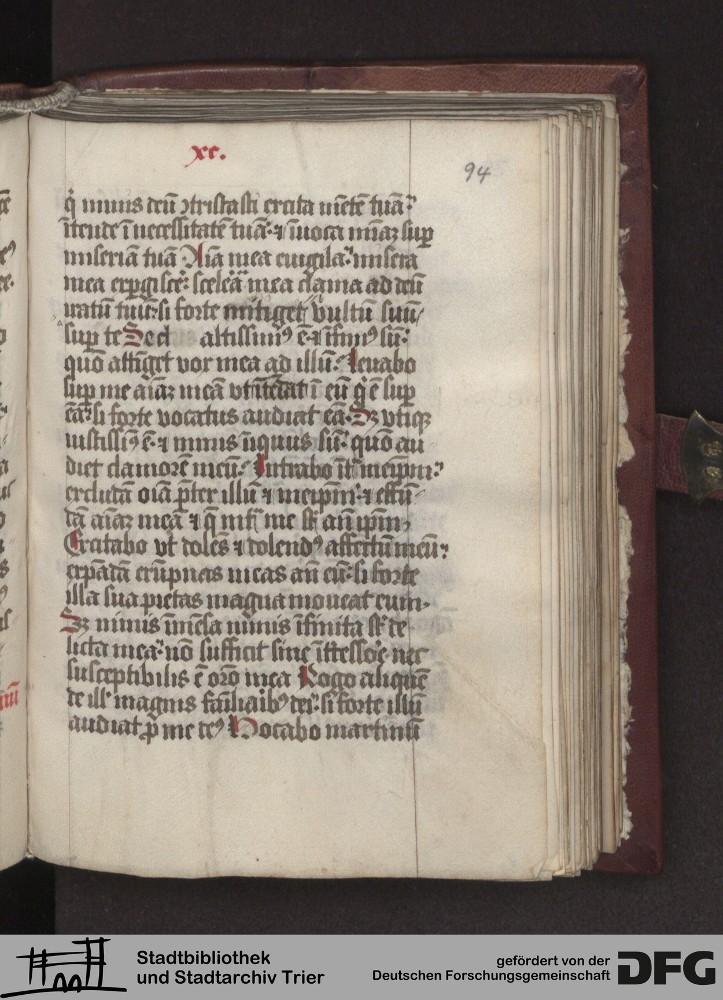 xc.
94
q̇ nimis deū ɔtristasti excita mētē tuā
ītende ī necessitatē tuā ⁊ īuoca mīaꝫ suꝑ
miseriā tuā Aīa mea euigila misera
mea exꝑgisce scelēa mea clama ad deū
iratū tuū si forte mitiget vultū suū
suꝑ te Sed altissimꝰ ē ⁊ īfimꝰ sū
quō attīget vox mea ad illū Leuabo
suꝑ me aīaꝫ meā vt ītēdat ī eū q̇ ē suꝑ
eā si forte vocatus audiat eā Sꝫ vtiqꝫ
iustissiꝰ ē ⁊ nimis iīquus sū quō au
diet clamorē meū Intrabo īt̄ meip̄m
excludā oīa p̄ter illū ⁊ meip̄m ⁊ effū
dā aīaꝫ meā ⁊ q̄ īn me sūt an̄ ip̄m
Excitabo vt dolēs ⁊ dolendꝰ affectū meū
expādā erūpnas meas an̄ eū si forte
illa sua pietas magna moueat eum
Sꝫ nimis īmēsa nimis īfinita sūt de
licta mea nō sufficit sine īt̄cessōe nec
susceptibilis ē orō mea Rogo aliquē
de ill' magnis fāiliaibꝰ dei si forte illū
audiat ꝓ me deꝰ Vocabo martinū
Stadtbibliothek
und Stadtarchiv Trier
gefördert von der
Deutschen Forschungsgemeinschaft
DFG